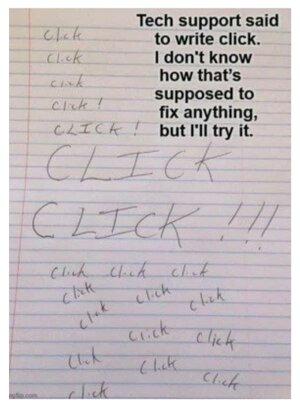 Tech support said
to write click.
I don't know
how that's
supposed to
fix anything,
but I'll try it.
Click
Click
Click
Click!
CLICK!
CLICK
CLICK!!!
Click Click Click
Click Click Click
Click
Click Click
Click Click
Click
Click
imgflip.com